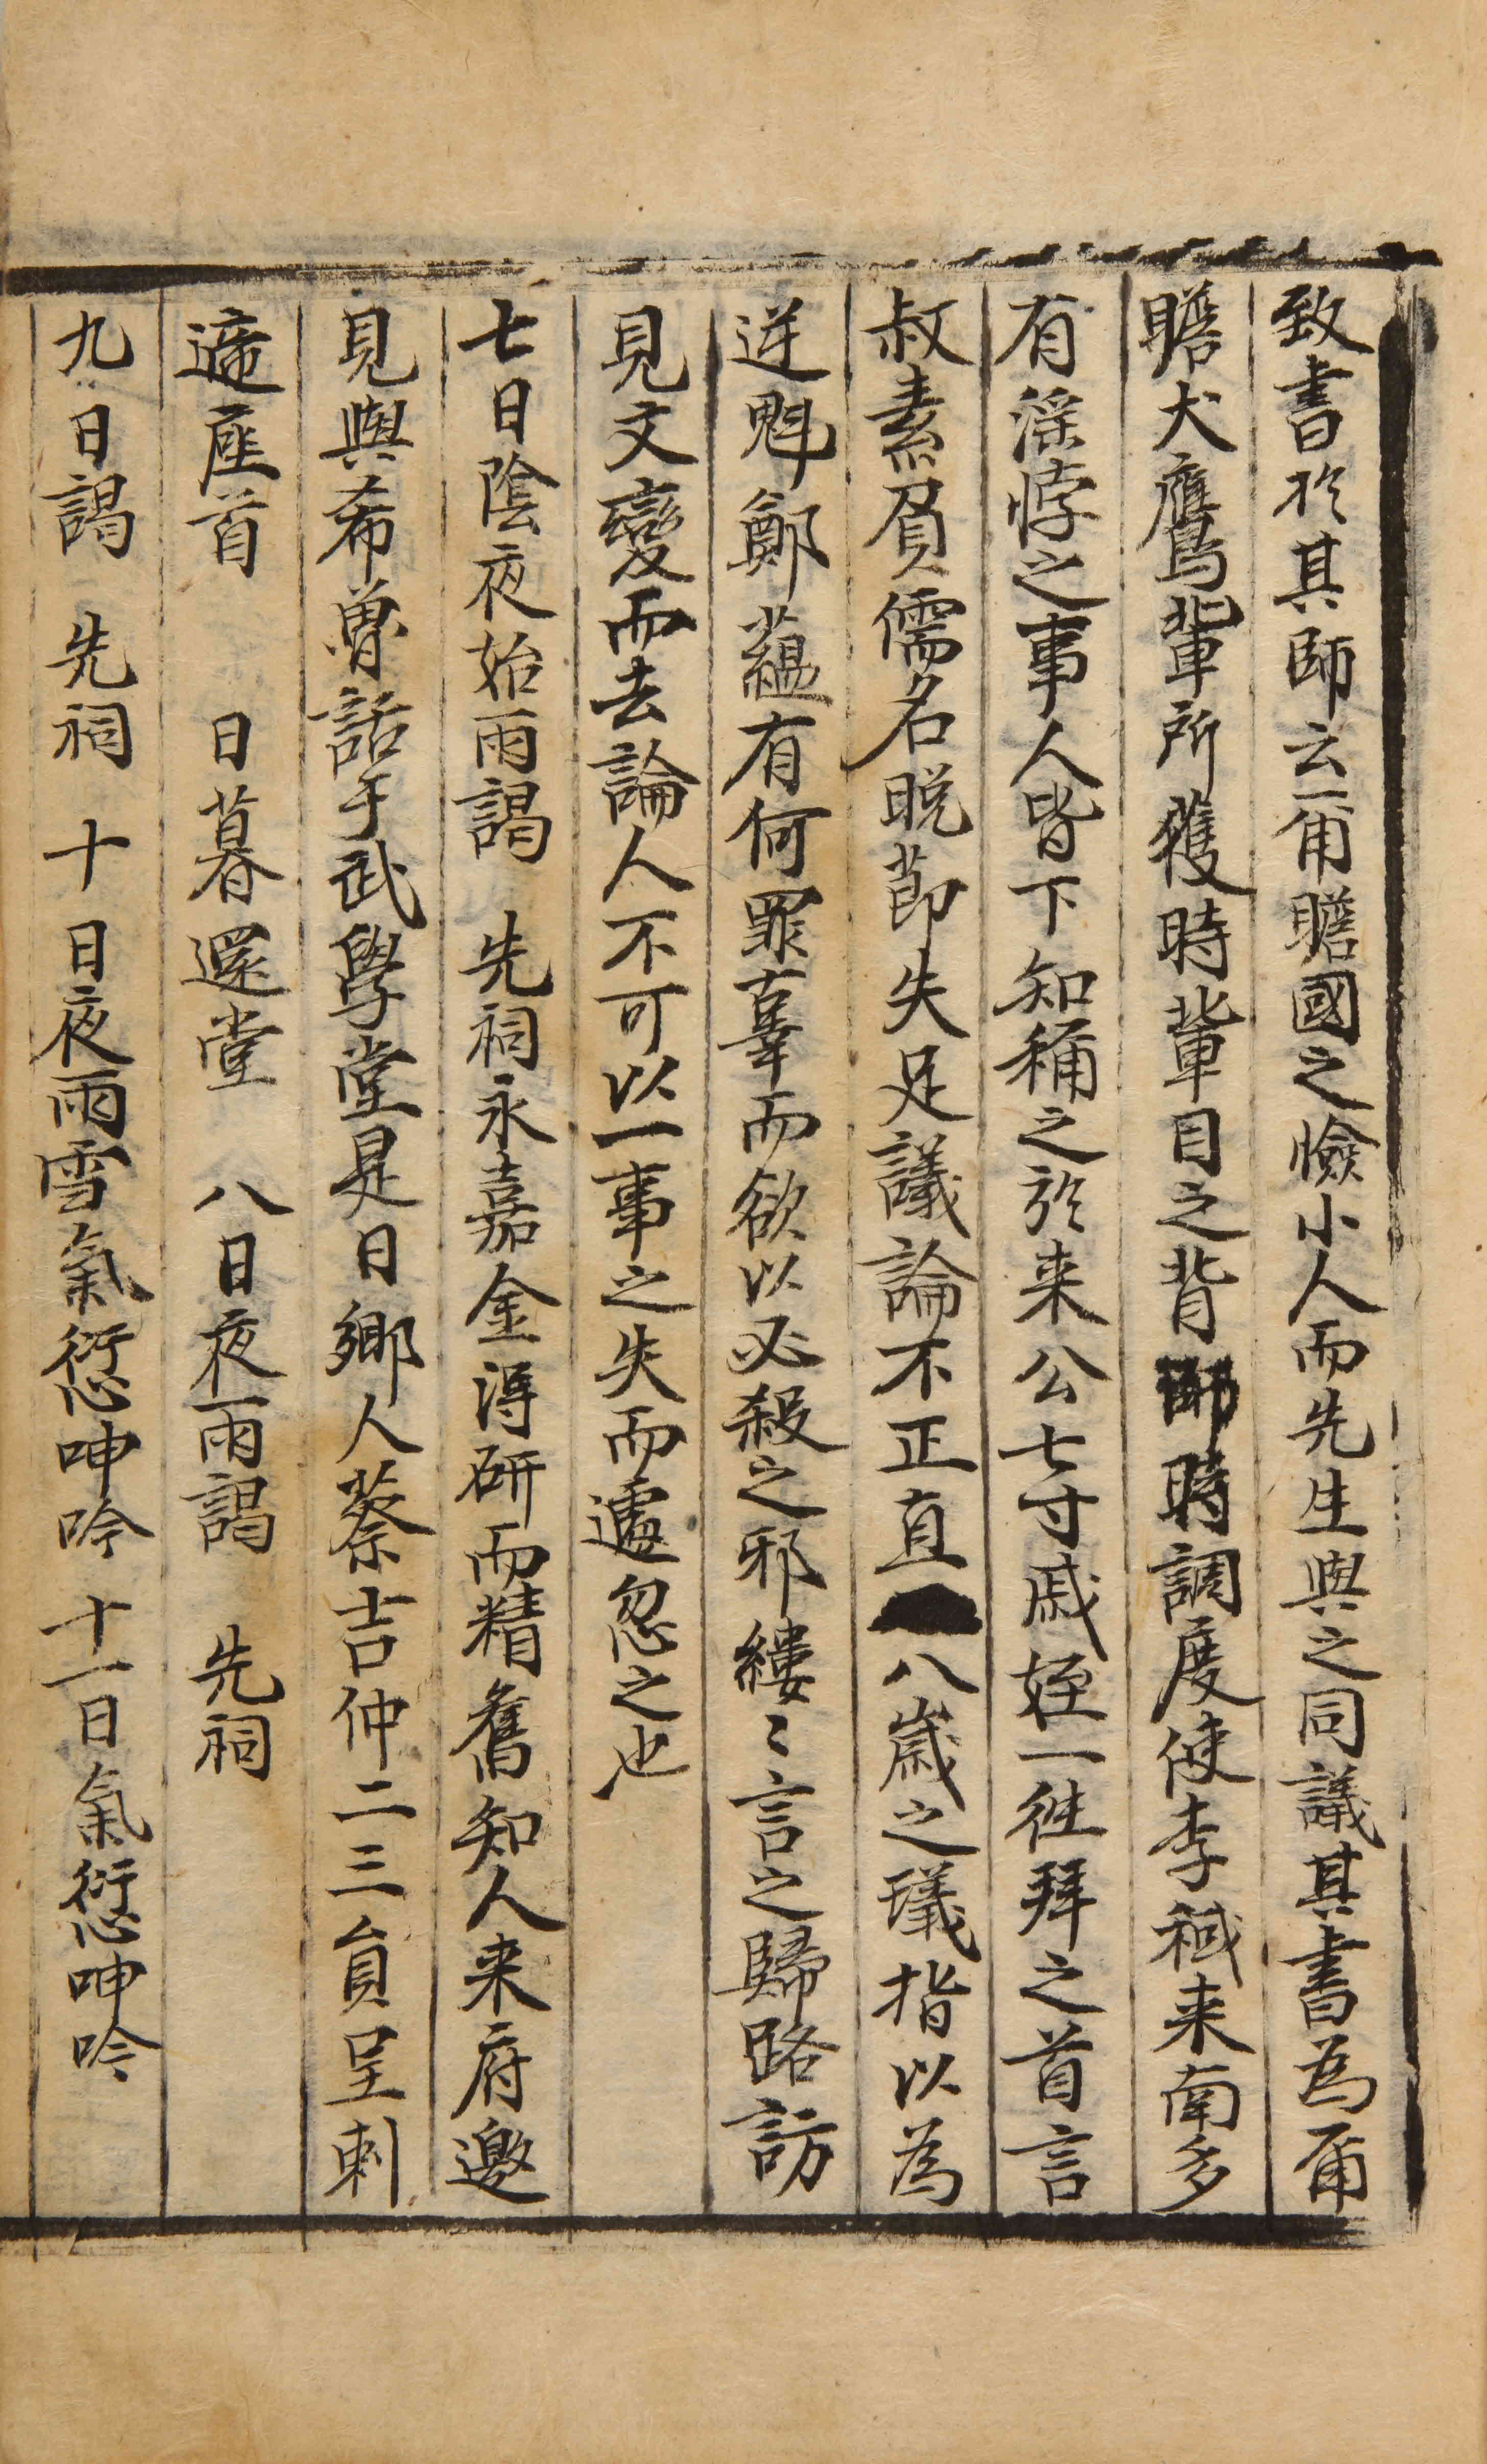 致書於其師云甭瞻國之憸小人而先生與之同議其書為甭
瞻犬鷹輩所獲時輩目之背師時調度使李稶来南多
有淫悖之事人皆下知稱之於来公七寸戚姪一徃拜之首言
叔素負儒名晚節失足議論不正直八歲之璣指以為
逆魁鄭蘊有何罪辜而欲以必殺之邪縷〻言之歸路訪
見文變而去論人不可以一事之失而遽忽之也
七日陰夜始雨謁　先祠永嘉金得研而精舊知人来府邀
見與希魯話于武學堂是日鄉人蔡吉仲二三員呈刺
適座首　　日暮還堂　八日夜雨謁　先祠
九日謁　先祠　十日夜雨雪氣愆呻吟　十一日氣愆呻吟